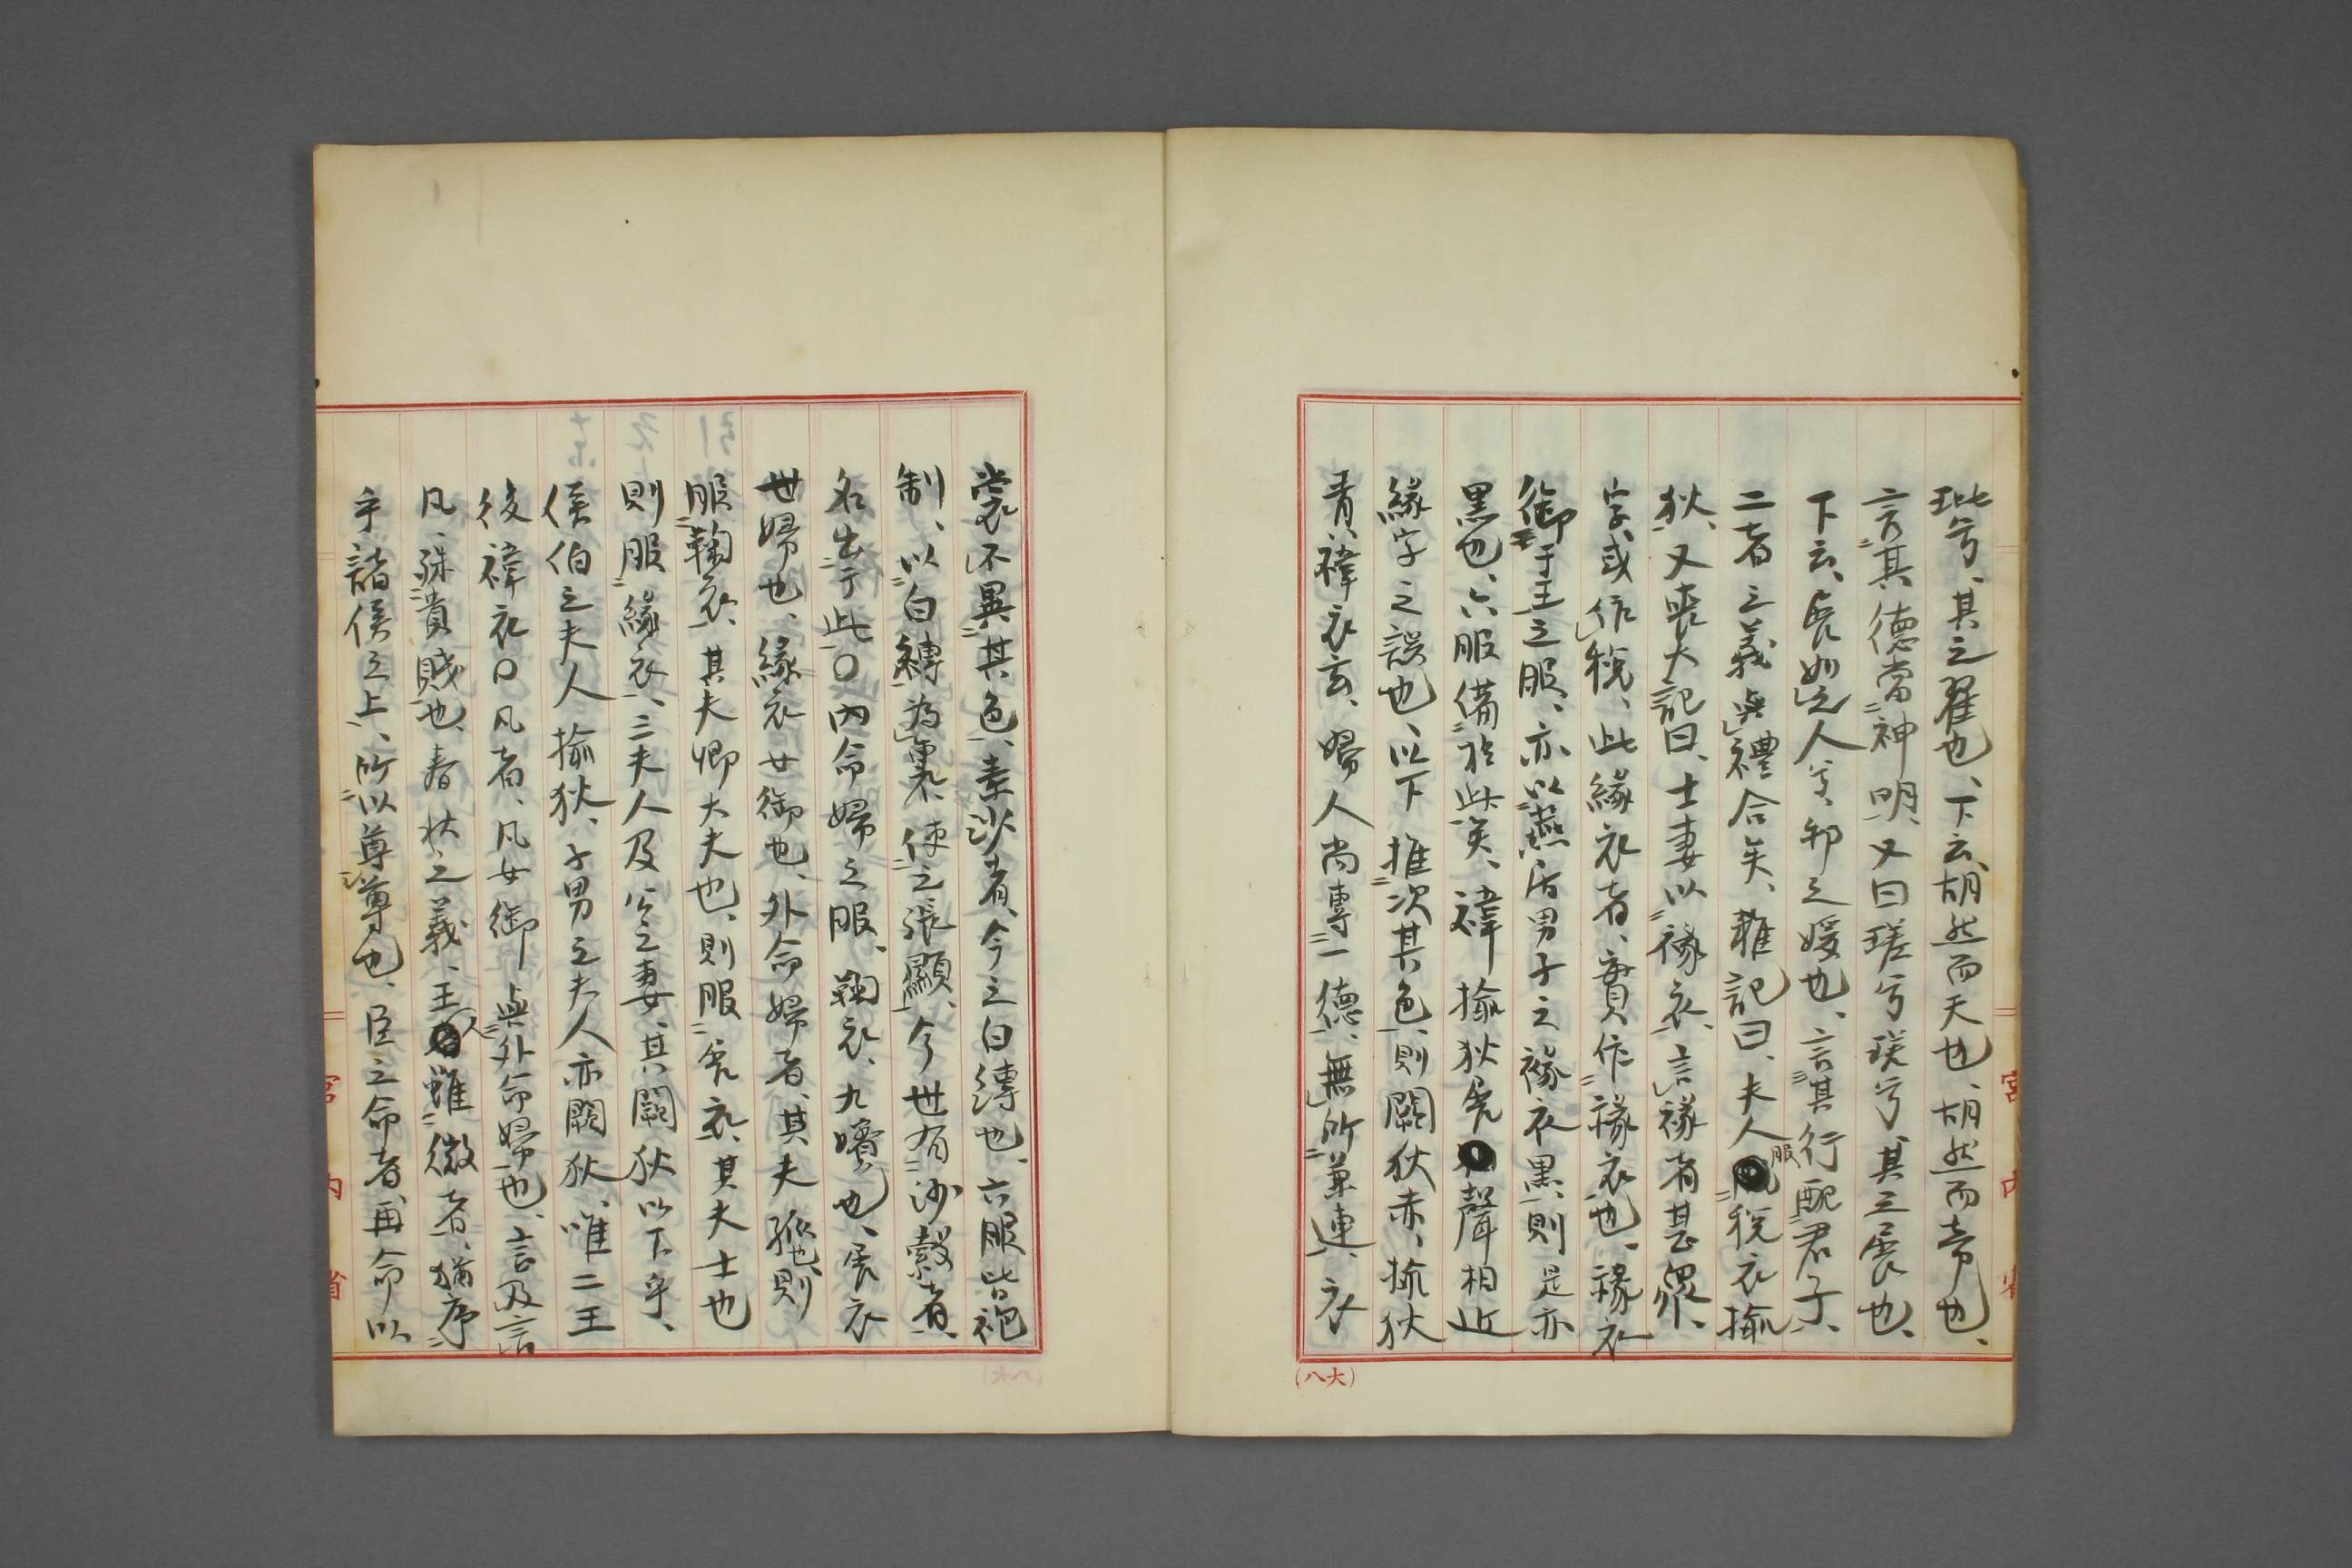 玼兮、其之翟也、下云、胡然而天也、胡然而帝也、
言其德當神明、又曰瑳兮瑳兮其之展也、
下云、展如之人兮、邦之媛也、言其行配君子、
二者之義與禮合矣、雜記曰、夫人服稅衣揄
狄、又喪大記曰、士妻以褖衣、言褖者甚衆、
字或作稅、此緣衣者、實作褖衣也、褖衣
御于王之服、亦以燕居男子之褖衣黑、則是亦
黑也、六服備於此矣、褘揄狄展聲相近
緣字之誤也、以下推次其色、則闕狄赤、揄狄
青、褘衣玄、婦人尚專一德、無所兼連、衣
裳不異其色、素沙者、今之白縳也、六服皆袍
制、以白縳為裏、使之張顯、今世有沙縠者、
名出于此〇內命婦之服、鞠衣、九嬪也、展衣
世婦也、緣衣女御也、外命婦者、其夫孤也、則
服鞠衣、其夫卿大夫也、則服展衣、其夫士也
則服緣衣、三夫人及公之妻、其闕狄以下乎、
侯伯之夫人揄狄、子男之夫人亦闕狄、唯二王
後褘衣〇凡者、凡女御與外命婦也、言及言
凡、殊貴賤也、春秋之義、王人雖微者、猶序
乎諸侯之上、所以尊尊也、臣之命者、再命以
宮內省
宮內省
(大八)